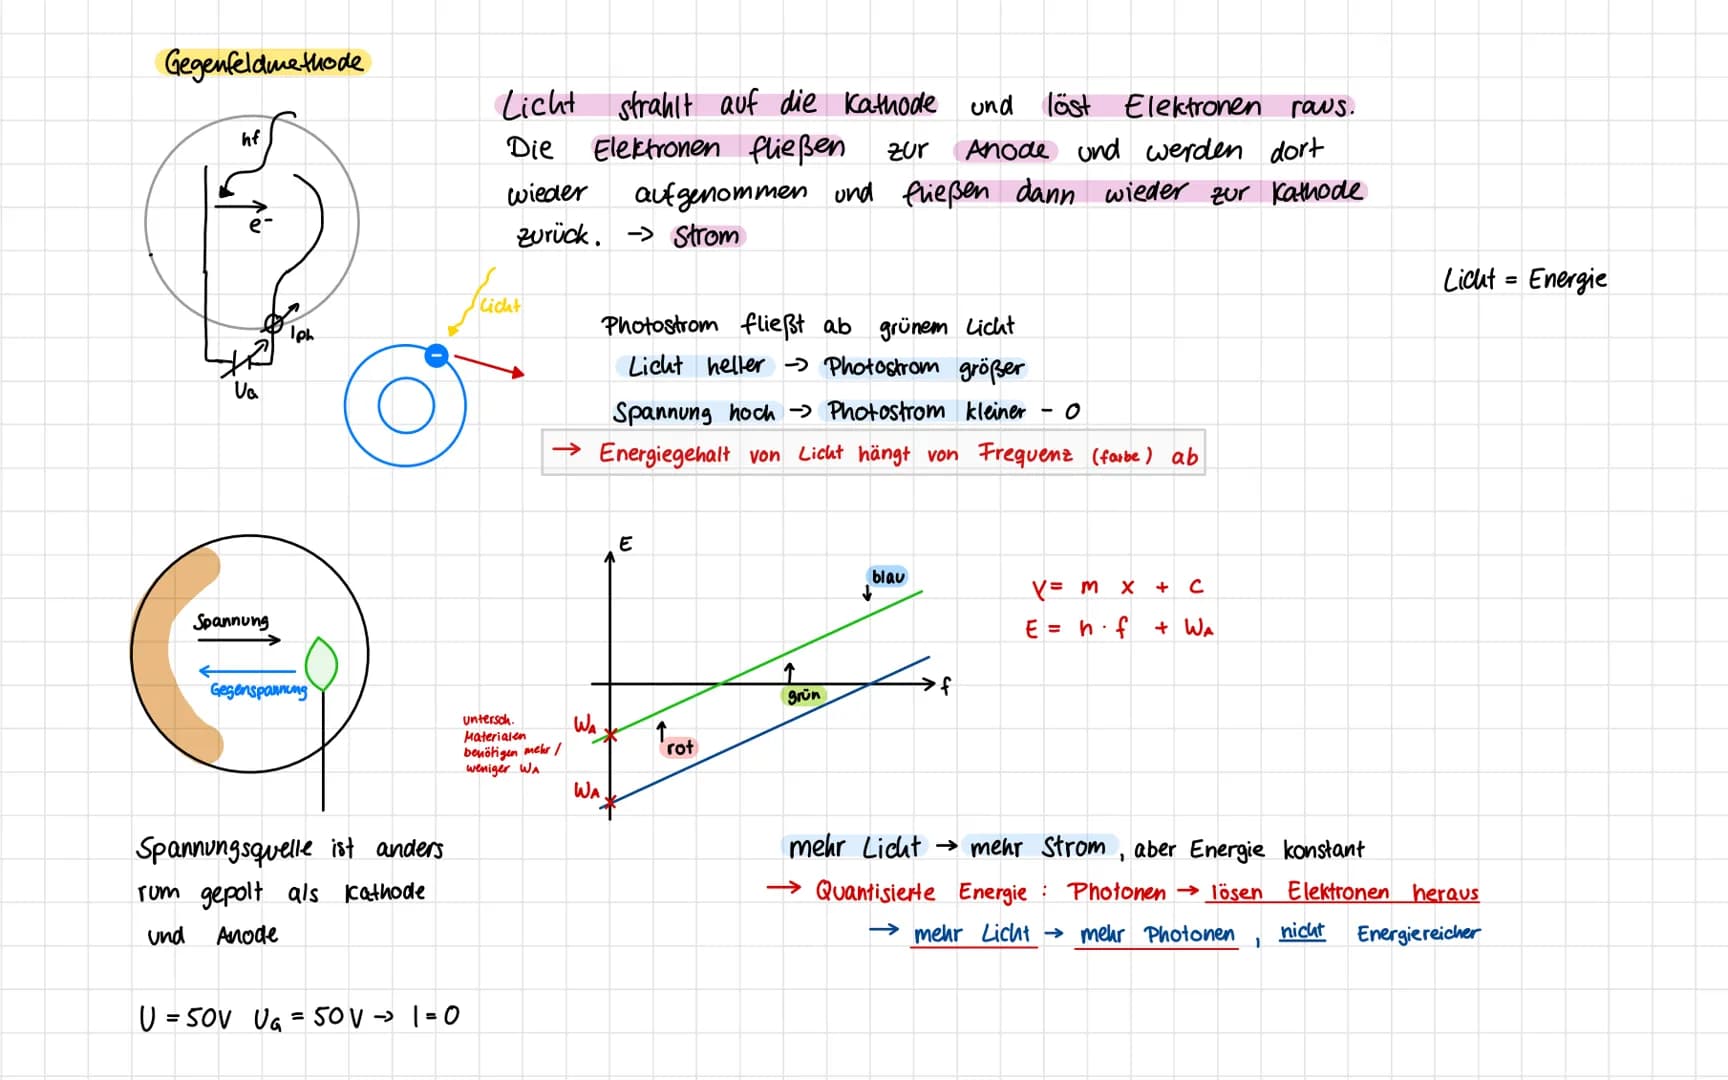 Gegenfeldmethode
hf
e-
Iph
Ua
Licht strahlt auf die Kathode und löst Elektronen raus.
Die Elektronen fließen zur Anode und werden dort
wieder aufgenommen und fließen dann wieder zur Kathode
zurück. -> Strom
Licht = Energie
Licht
Photostrom fließt ab grünem Licht
Licht heller -> Photostrom größer
Spannung hoch -> Photostrom kleiner - 0
→ Energiegehalt von Licht hängt von Frequenz (farbe) ab
Spannung
Gegenspannung
E
blau
grün
f
rot
WA
WA
untersch.
Materialen
benötigen mehr /
weniger WA
Y = m x + c
E = h · f + WA
Spannungsquelle ist anders
rum gepolt als Kathode
und Anode
U = 50V UG = 50V -> I = 0
mehr Licht → mehr Strom, aber Energie konstant
→ Quantisierte Energie: Photonen → lösen Elektronen heraus
→ mehr Licht → mehr Photonen, nicht Energiereicher